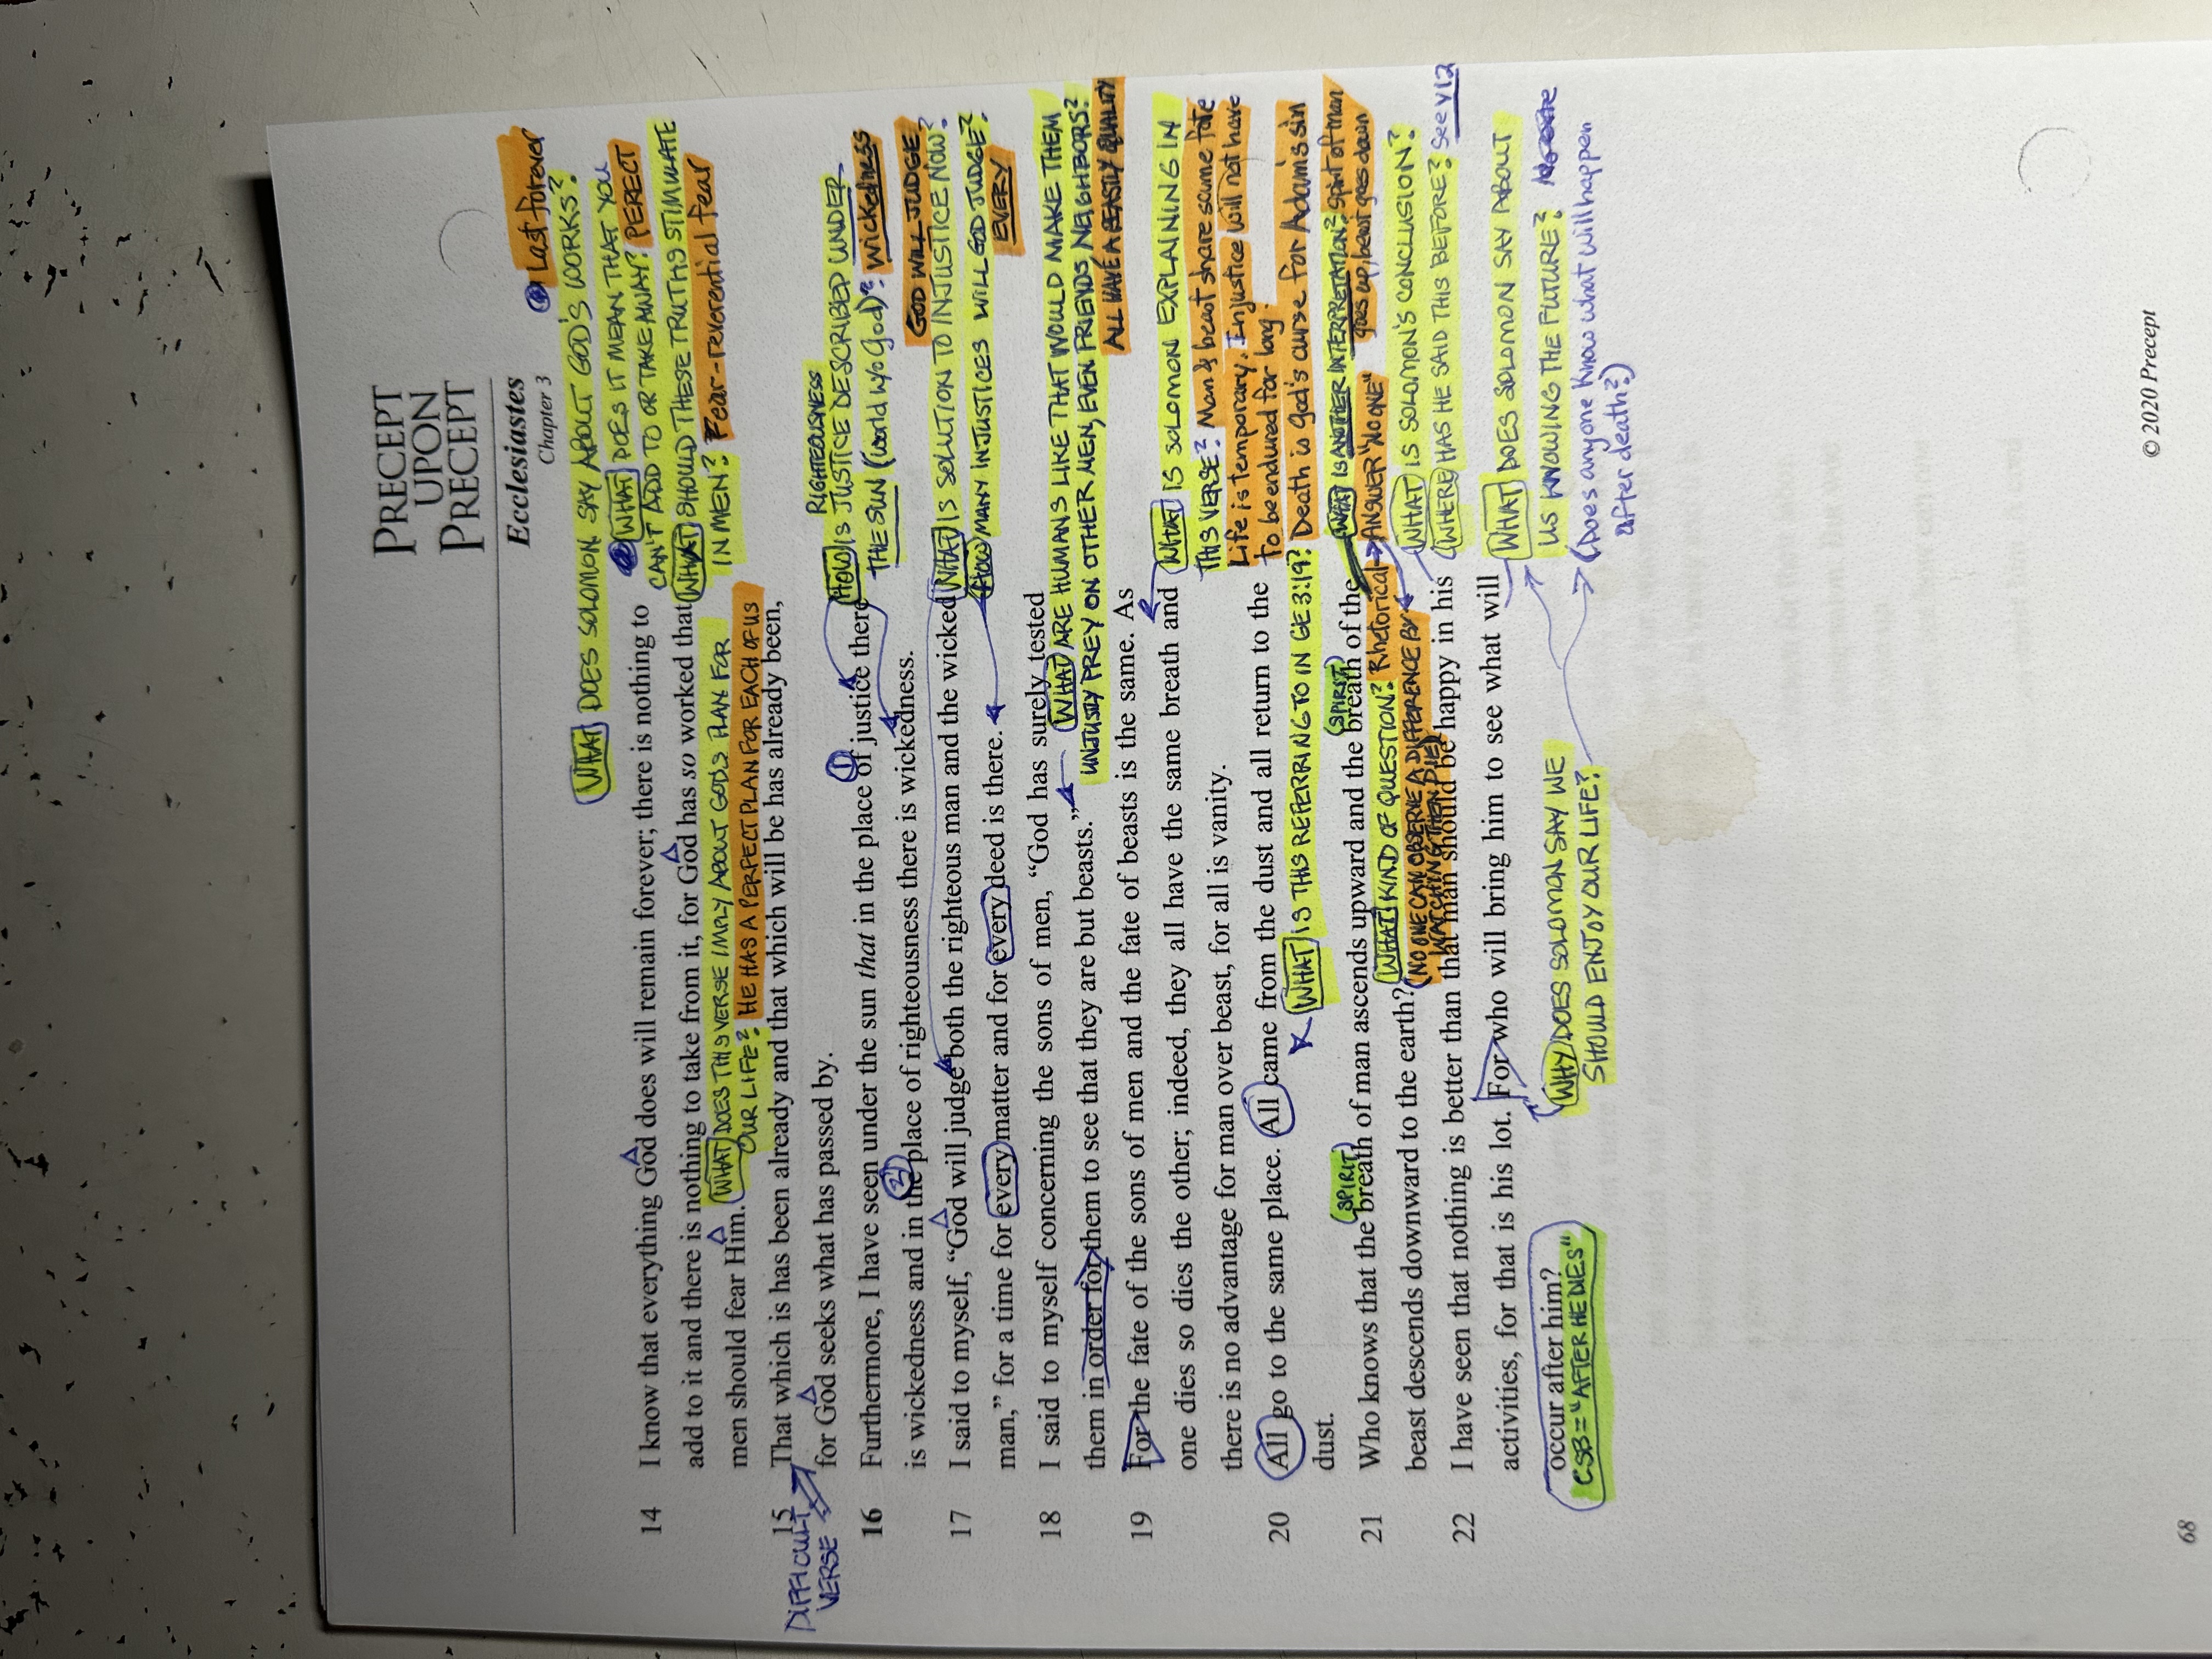 PRECEPT
UPON
PRECEPT
Ecclesiastes
Chapter 3
Last forever
WHAT DOES SOLOMON SAY ABOUT GOD'S WORKS?
14 I know that everything God does will remain forever; there is nothing to
WHAT DOES IT MEAN THAT YOU
CAN'T ADD TO OR TAKE AWAY? PERECT
add to it and there is nothing to take from it, for God has so worked that
WHAT SHOULD THESE TRUTHS STIMULATE
IN MEN? Fear-reverential fear
men should fear Him.
WHAT DOES THIS VERSE IMPLY ABOUT GOD'S PLAN FOR
OUR LIFE? HE HAS A PERFECT PLAN FOR EACH OF US
15 That which is has been already and that which will be has already been,
DIFFICULT
VERSE
for God seeks what has passed by.
RIGHTEOUSNESS
16 Furthermore, I have seen under the sun that in the place of justice there
1
HOW IS JUSTICE DESCRIBED UNDER
THE SUN (World w/o God)? wickedness
is wickedness and in the place of righteousness there is wickedness.
2
GOD WILL JUDGE
17 I said to myself, “God will judge both the righteous man and the wicked
WHAT IS SOLUTION TO INJUSTICE NOW?
HOW MANY INJUSTICES WILL GOD JUDGE?
EVERY
man,” for a time for every matter and for every deed is there.
18 I said to myself concerning the sons of men, “God has surely tested
WHAT ARE HUMANS LIKE THAT WOULD MAKE THEM
UNJUSTLY PREY ON OTHER MEN, EVEN FRIENDS, NEIGHBORS?
ALL HAVE A BEASTLY QUALITY
them in order for them to see that they are but beasts.”
19 For the fate of the sons of men and the fate of beasts is the same. As
WHAT IS SOLOMON EXPLAINING IN
THIS VERSE? Man & beast share same fate
one dies so dies the other; indeed, they all have the same breath and
Life is temporary. Injustice will not have
to be endured for long.
there is no advantage for man over beast, for all is vanity.
20 All go to the same place. All came from the dust and all return to the
dust.
WHAT IS THIS REFERRING TO IN GE 3:19? Death is God's curse for Adam's sin
SPIRIT
SPIRIT
21 Who knows that the breath of man ascends upward and the breath of the
WHAT IS ANOTHER INTERPRETATION? Spirit of man
goes up, beast goes down
beast descends downward to the earth?
WHAT KIND OF QUESTION? Rhetorical ANSWER "NO ONE"
(NO ONE CAN OBSERVE A DIFFERENCE BY
WATCHING THEM DIE)
22 I have seen that nothing is better than that man should be happy in his
WHAT IS SOLOMON'S CONCLUSION?
WHERE HAS HE SAID THIS BEFORE? See v12
activities, for that is his lot. For who will bring him to see what will
WHAT DOES SOLOMON SAY ABOUT
US KNOWING THE FUTURE?
occur after him?
CSB = "AFTER HE DIES"
WHY DOES SOLOMON SAY WE
SHOULD ENJOY OUR LIFE?
(Does anyone know what will happen
after death?)
68
© 2020 Precept